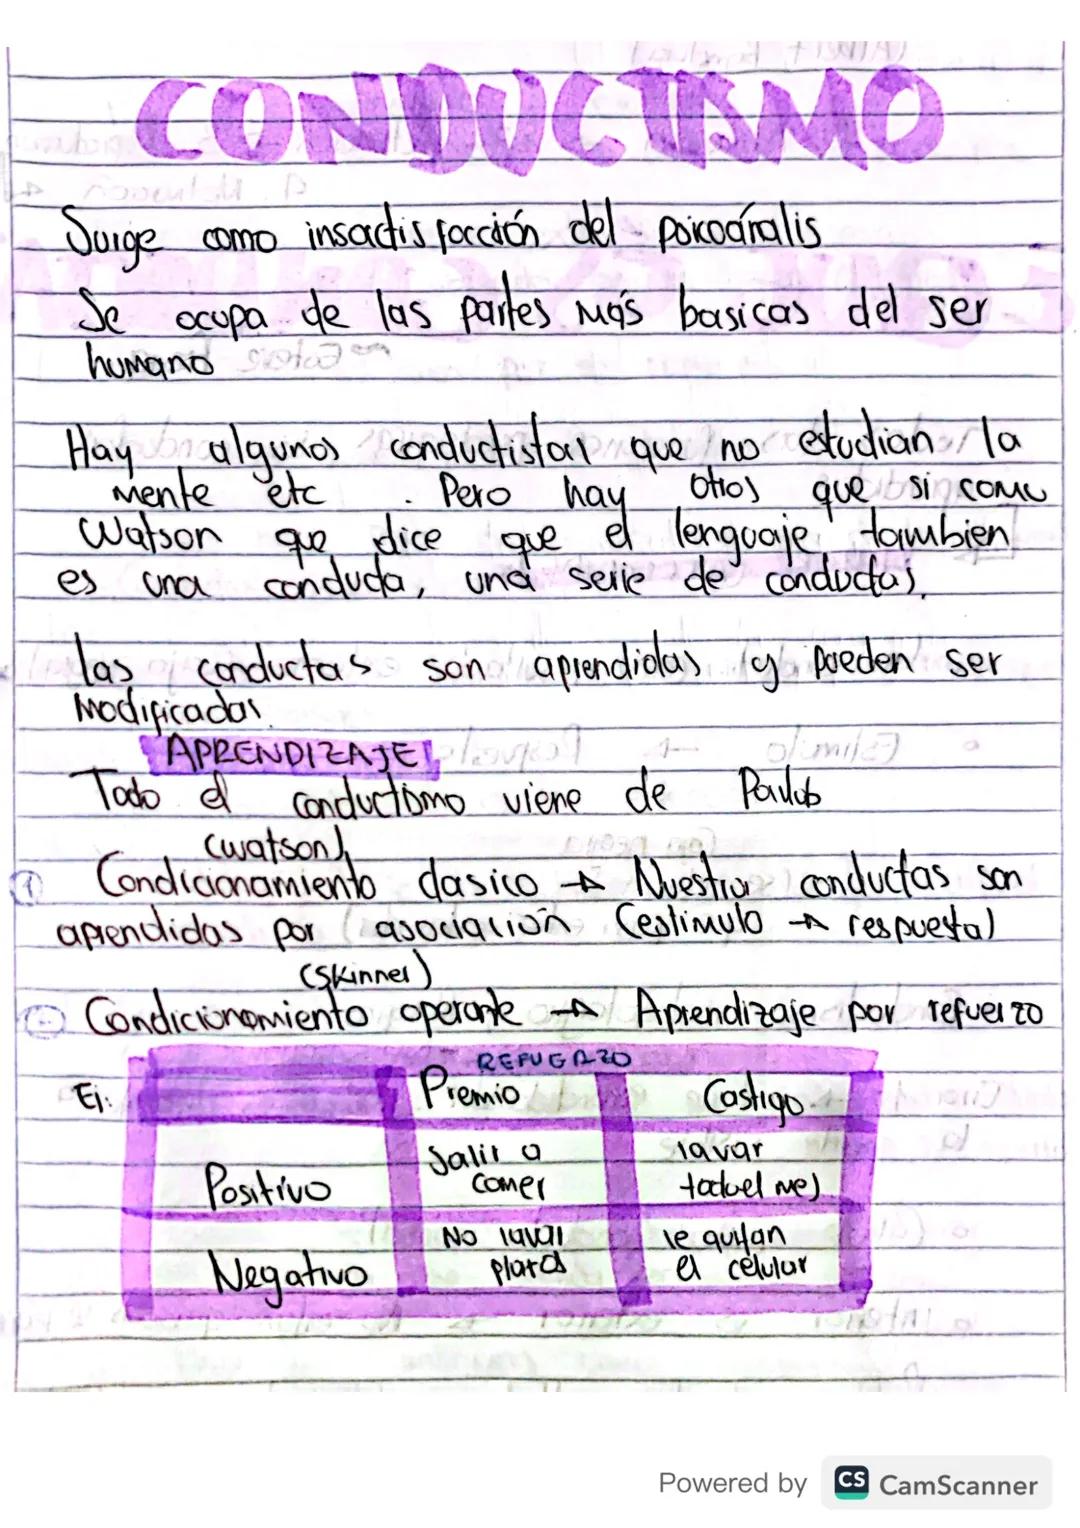 CONDUCTISMO
Surge como insactisfacción del psicoánalis
Se ocupa de las partes más basicas del ser
humano
Hay algunos conductistas que no estudian la
mente etc . Pero hay otros que si como
Watson que dice que el lenguaje tambien
es una conducta, una serie de conductas.
las conductas son aprendidas y pueden ser
Modificadas.
APRENDIZAJE
Todo el conductismo viene de Paulob
(watson)
1 Condicionamiento clasico → Nuestras conductas son
aprendidas por asociación (estimulo → respuesta)
(Skinner)
2 Condicionamiento operante → Aprendizaje por refuerzo
REFUERZO
Ej: Premio Castigo
Positivo Salir a comer lavar todo el mes
Negativo No lavar platos le quitan el celular
Powered by CS CamScanner